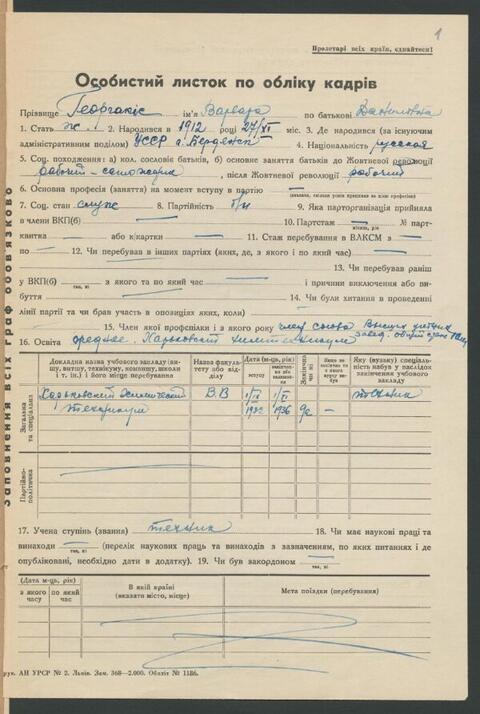 1
Пролетарі всіх країн, єднайтеся!
Особистий листок по обліку кадрів
Прізвище Георгакіс ім'я Варвара по батькові Даниловна
1. Стать ж. 2. Народився в 1912 році 27/XI міс. 3. Де народився (за існуючим
адміністративним поділом) УССР г. Бердянск 4. Національність русская
5. Соц. походження: а) кол. сословіє батьків, б) основне заняття батьків до Жовтневої революції
рабочий - сапожник, після Жовтневої революції рабочий
6. Основна професія (заняття) на момент вступу в партію —
7. Соц. стан служ 8. Партійність б/п 9. Яка парторганізація прийняла
в члени ВКП(б) — 10. Партстаж — № парт-
місяць, рік
квитка — або к/картки — 11. Стаж перебування в ВЛКСМ з —
по — 12. Чи перебував в інших партіях (яких, де, з якого і по який час) —
13. Чи перебував раніш
у ВКП(б) — з якого та по який час — і причини виключення або ви-
так, ні
буття — 14. Чи були хитання в проведенні
лінії партії та чи брав участь в опозиціях яких, коли) —
15. Член якої профспілки і з якого року член союза
16. Освіта среднее. Харьковский химтехникум
Докладна назва учбового закладу (ви-
шу, втишу, технікуму, комвишу, школи
і т. ін.) і його місце перебування
Назва факуль-
тету або від-
ділу
Дата (м-ць, рік)
вступу
Закінчив
чи ні
Яку (вузьку) спеціаль-
ність набув в наслідок
закінчення учбового
закладу
Загальна
та спеціальна
Харьковский Химический
техникум
В.В
1/IX
1932
1/XI
1936
да
—
техник
Партійно-
політична
17. Учена ступінь (звання) техник 18. Чи має наукові праці та
винаходи — (перелік наукових праць та винаходів з зазначенням, по яких питаннях і де
так, ні
опубліковані, необхідно дати в додатку). 19. Чи був закордоном —
так, ні
(Дата м-ць, рік)
з якого
часу
по який
час
В якій країні
(вказати місто, місце)
Мета поїздки (перебування)
рук. АН УРСР № 2. Львів. Зам. 368—2.000. Обліт № 1186.
Заповнення всіх граф обов'язково